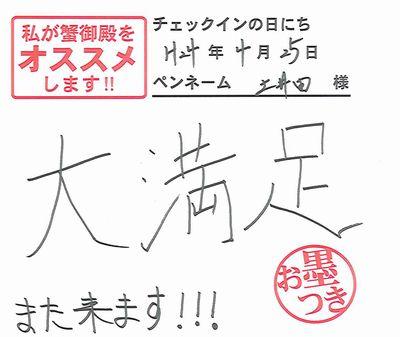 私が蟹御殿を
オススメ
します!!
チェックインの日にち
H24年4月25日
ペンネーム 土井田 様
大満足
また来ます!!!
お墨つき